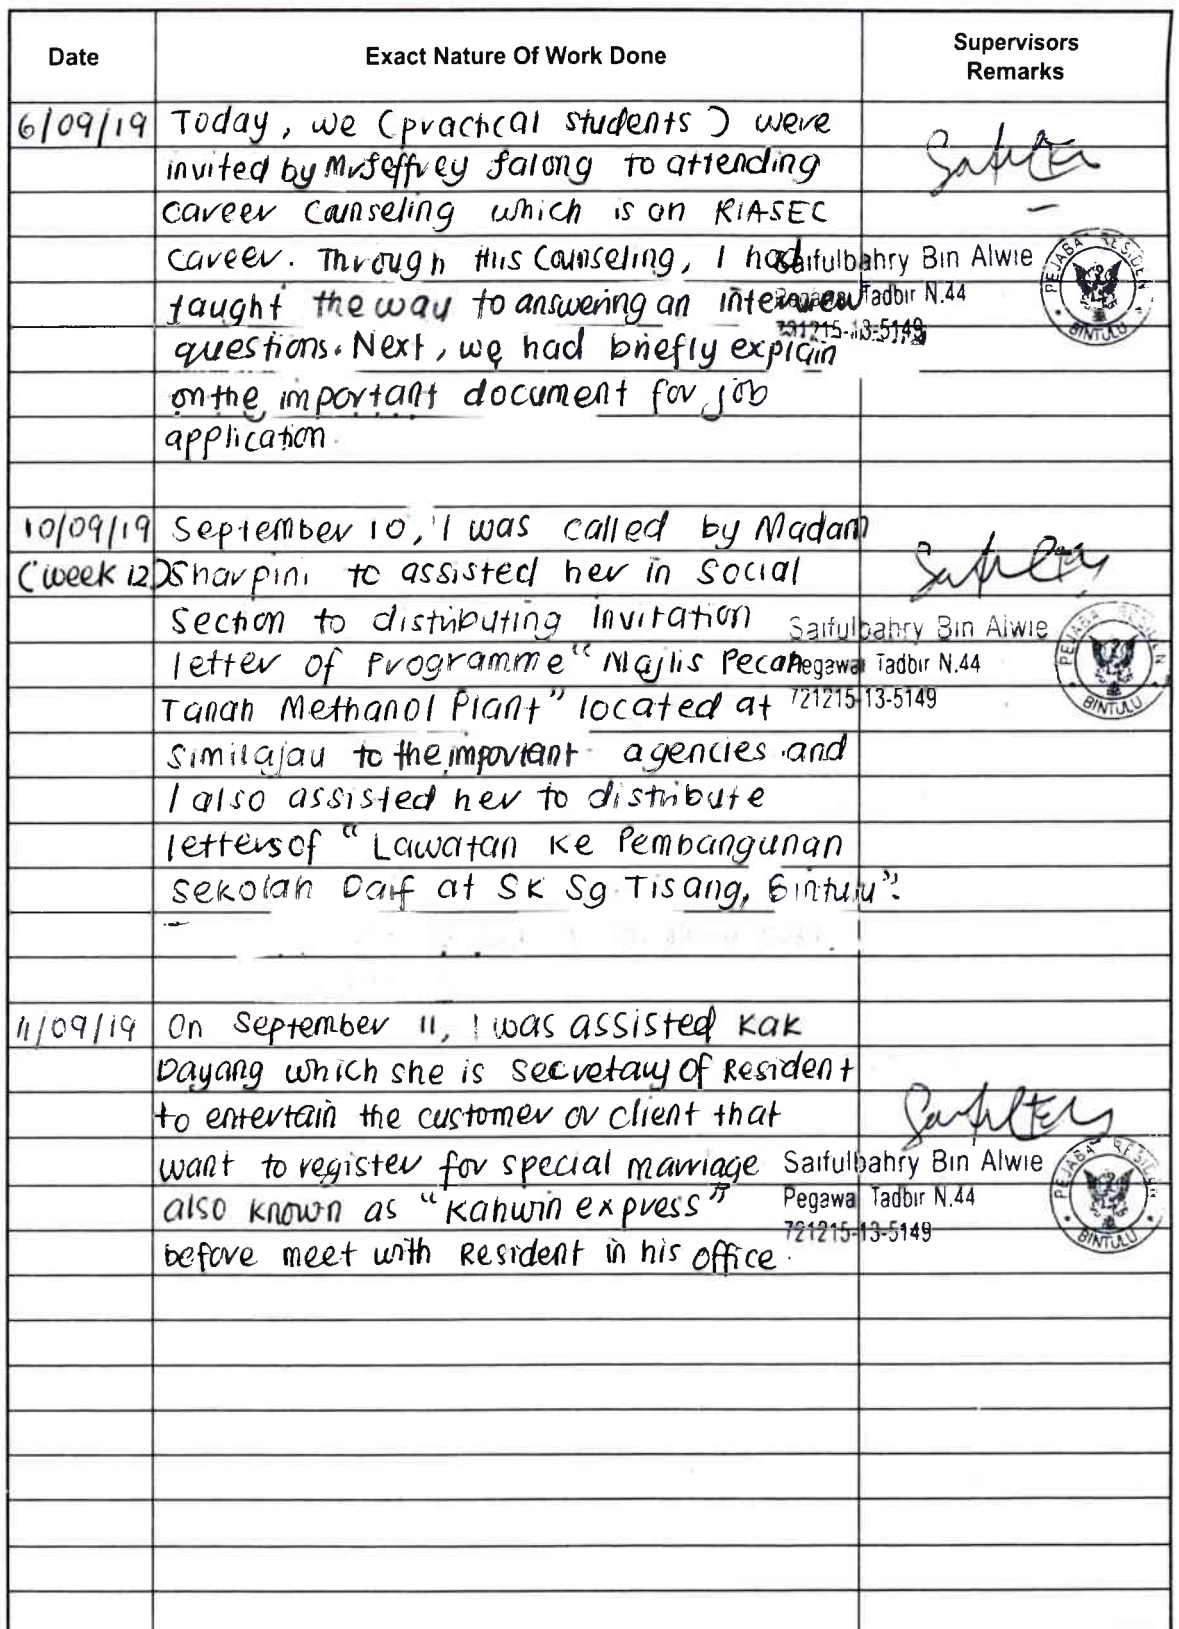 Date Exact Nature Of Work Done Supervisors Remarks
6/09/19 Today, we (practical students) were
invited by Mr Jeffrey Jalong to attending
career counseling which is on RIASEC
career. Through this counseling, I had
taught the way to answering an interview
questions. Next, we had briefly explain
on the important document for job
application.
Saifulbahry Bin Alwie
Pegawai Tadbir N.44
721215-13-5149
PEJABAT RESIDEN
BINTULU
10/09/19 September 10, I was called by Madam
(week 12) Sharpini to assisted her in Social
Section to distributing Invitation
letter of Programme "Majlis Pecah
Tanah Methanol Plant" located at
Similajau to the important agencies and
I also assisted her to distribute
letters of "Lawatan Ke Pembangunan
Sekolah Daif at SK Sg Tisang, Bintulu".
Saifulbahry Bin Alwie
Pegawai Tadbir N.44
721215-13-5149
PEJABAT RESIDEN
BINTULU
11/09/19 On September 11, I was assisted Kak
Dayang which she is Secretary of Resident
to entertain the customer or client that
want to register for special marriage
also known as "Kahwin express"
before meet with Resident in his office.
Saifulbahry Bin Alwie
Pegawai Tadbir N.44
721215-13-5149
PEJABAT RESIDEN
BINTULU